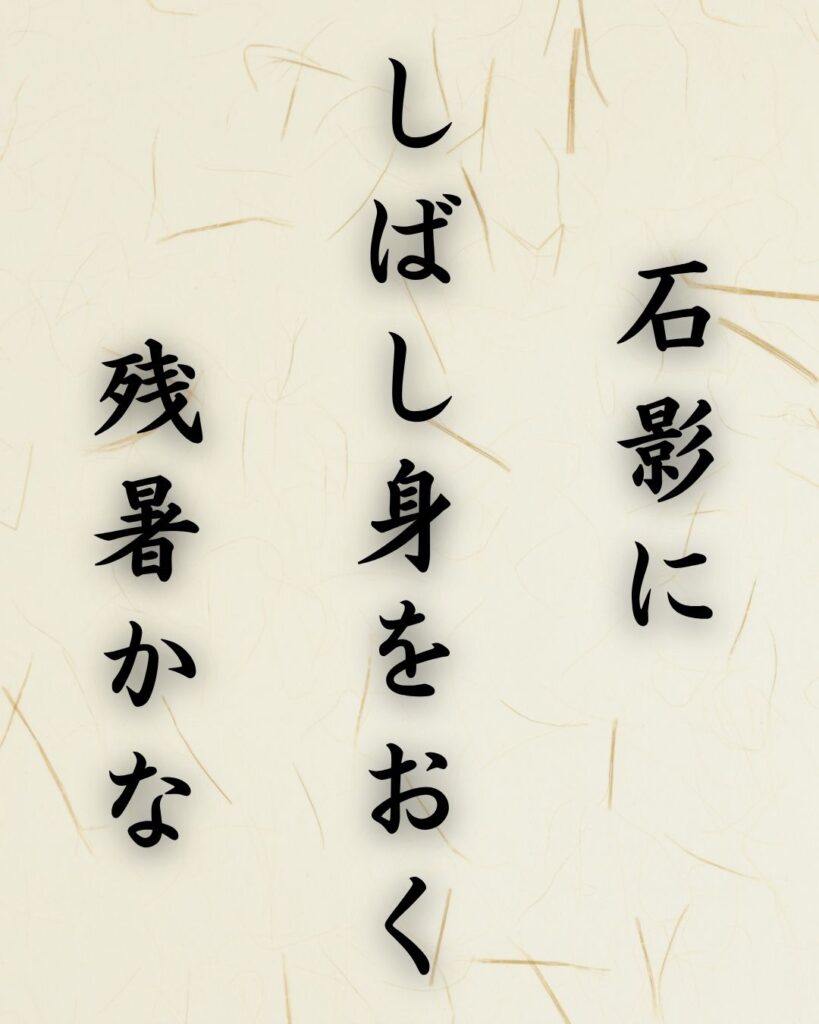 石影に
しばし身をおく
残暑かな